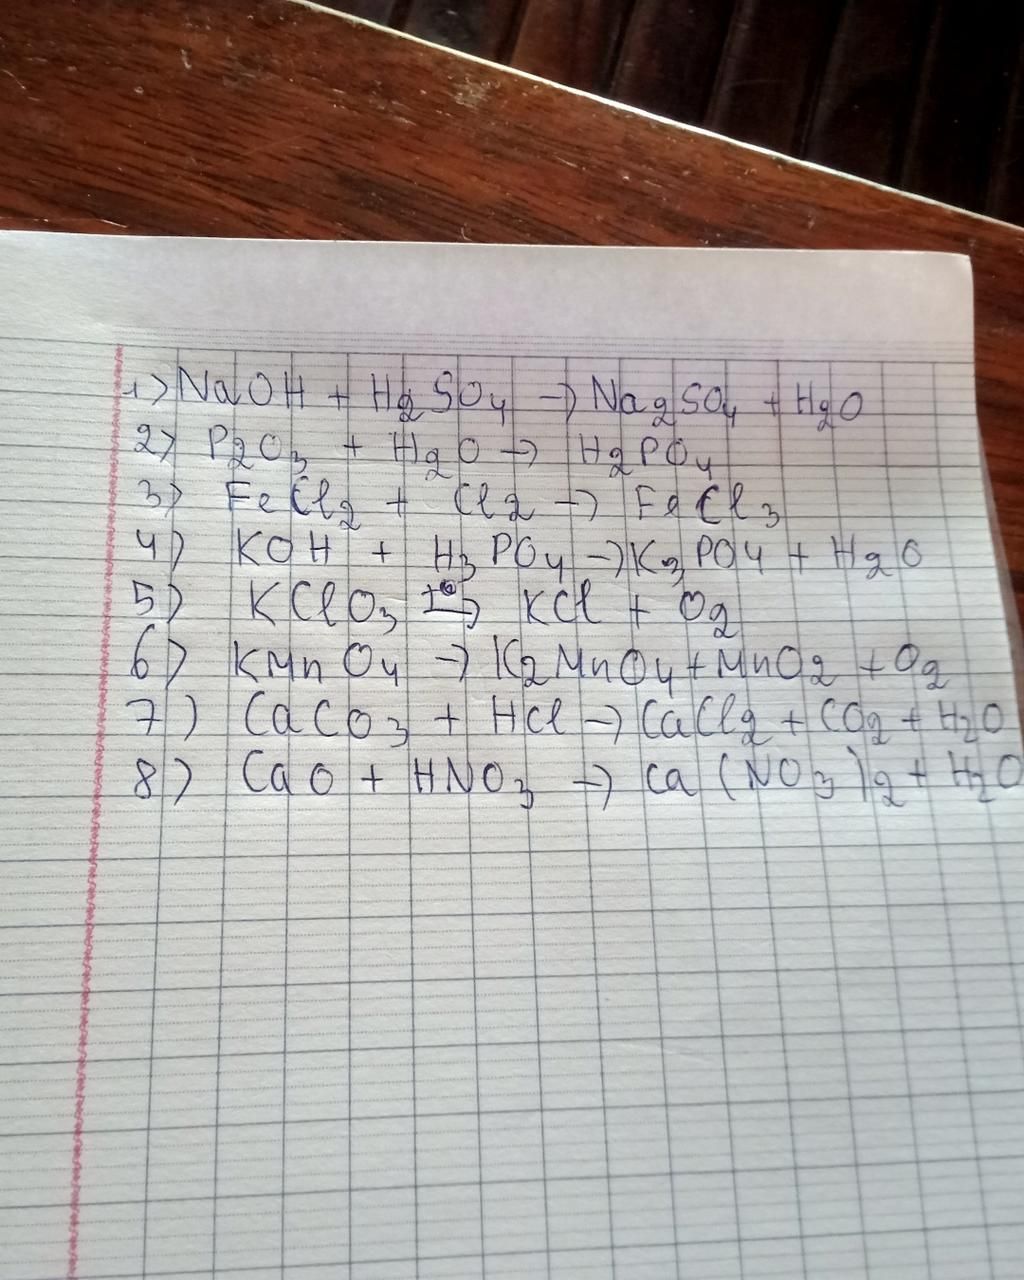 1) NaOH + H2SO4 → Na2SO4 + H2O
2) P2O3 + H2O → H2PO4
3) FeCl2 + Cl2 → FeCl3
4) KOH + H3PO4 → K3PO4 + H2O
5) KClO3 → KCl + O2
6) KMnO4 → K2MnO4 + MnO2 + O2
7) CaCO3 + HCl → CaCl2 + CO2 + H2O
8) CaO + HNO3 → Ca(NO3)2 + H2O